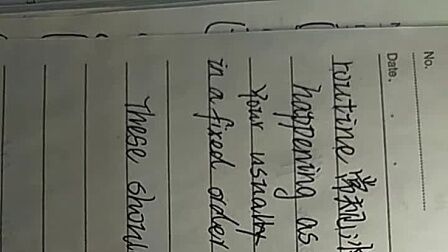 No.
Date.
routine 常规
happening as
Your usually
in a fixed order
These